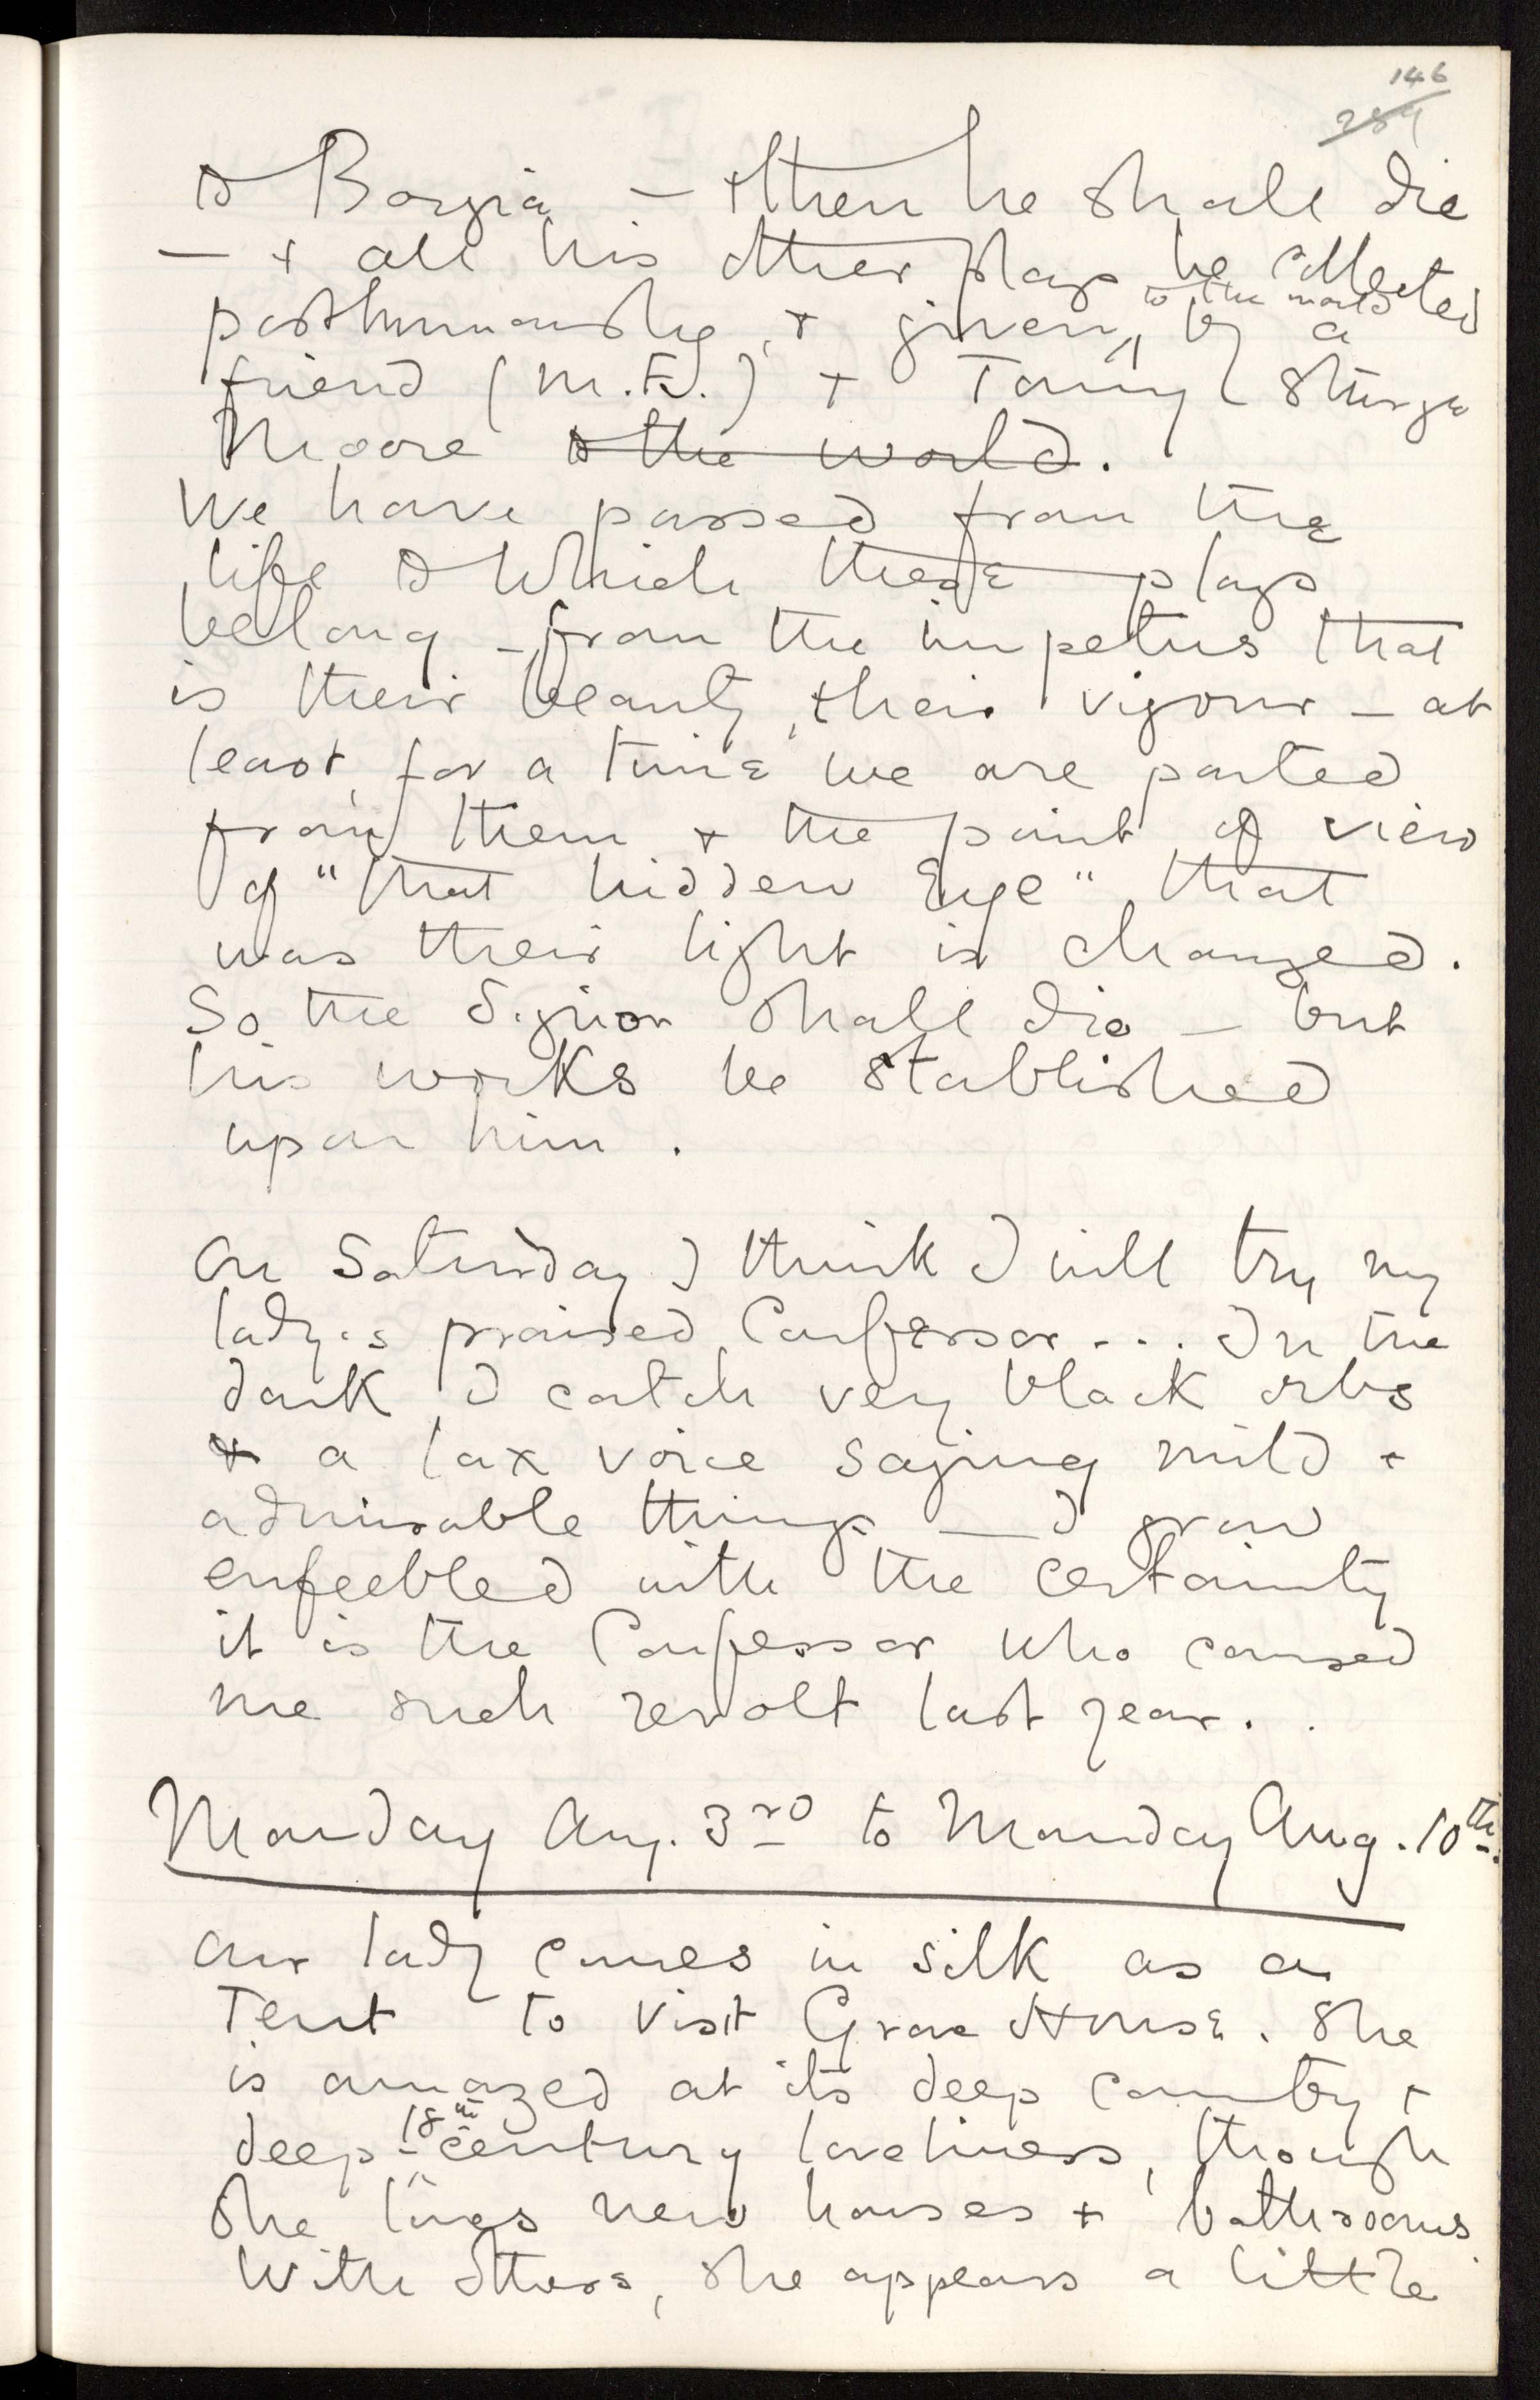 146
254
to Borgia – then he shall die
– + all his other plays be collected
posthumously, + given to the world by a
friend (M.F.) + Tommy Sturge
Moore to the world.
We have passed from the
life to which these plays
belong – from the impetus that
is their beauty, their vigour – at
least, for a time we are parted
from them + the point of view
of "that hidden Eye" that
was their light is changed.
So the Signor shall die – but
his works be stablished
upon him.
On Saturday I think I will try my
lady's praised Confessor... In the
dark I catch very black orbs
+ a lax voice saying mild +
admirable things — I grow
enfeebled with the certainty
it is the Confessor who caused
me such revolt last year..
Monday Aug. 3rd to Monday Aug. 10th.
Our lady comes in silk as a
Tent to visit Grove House. She
is amazed at its deep country +
deep-18th century loveliness, though
she loves new houses + bathrooms.
With others, she appears a little